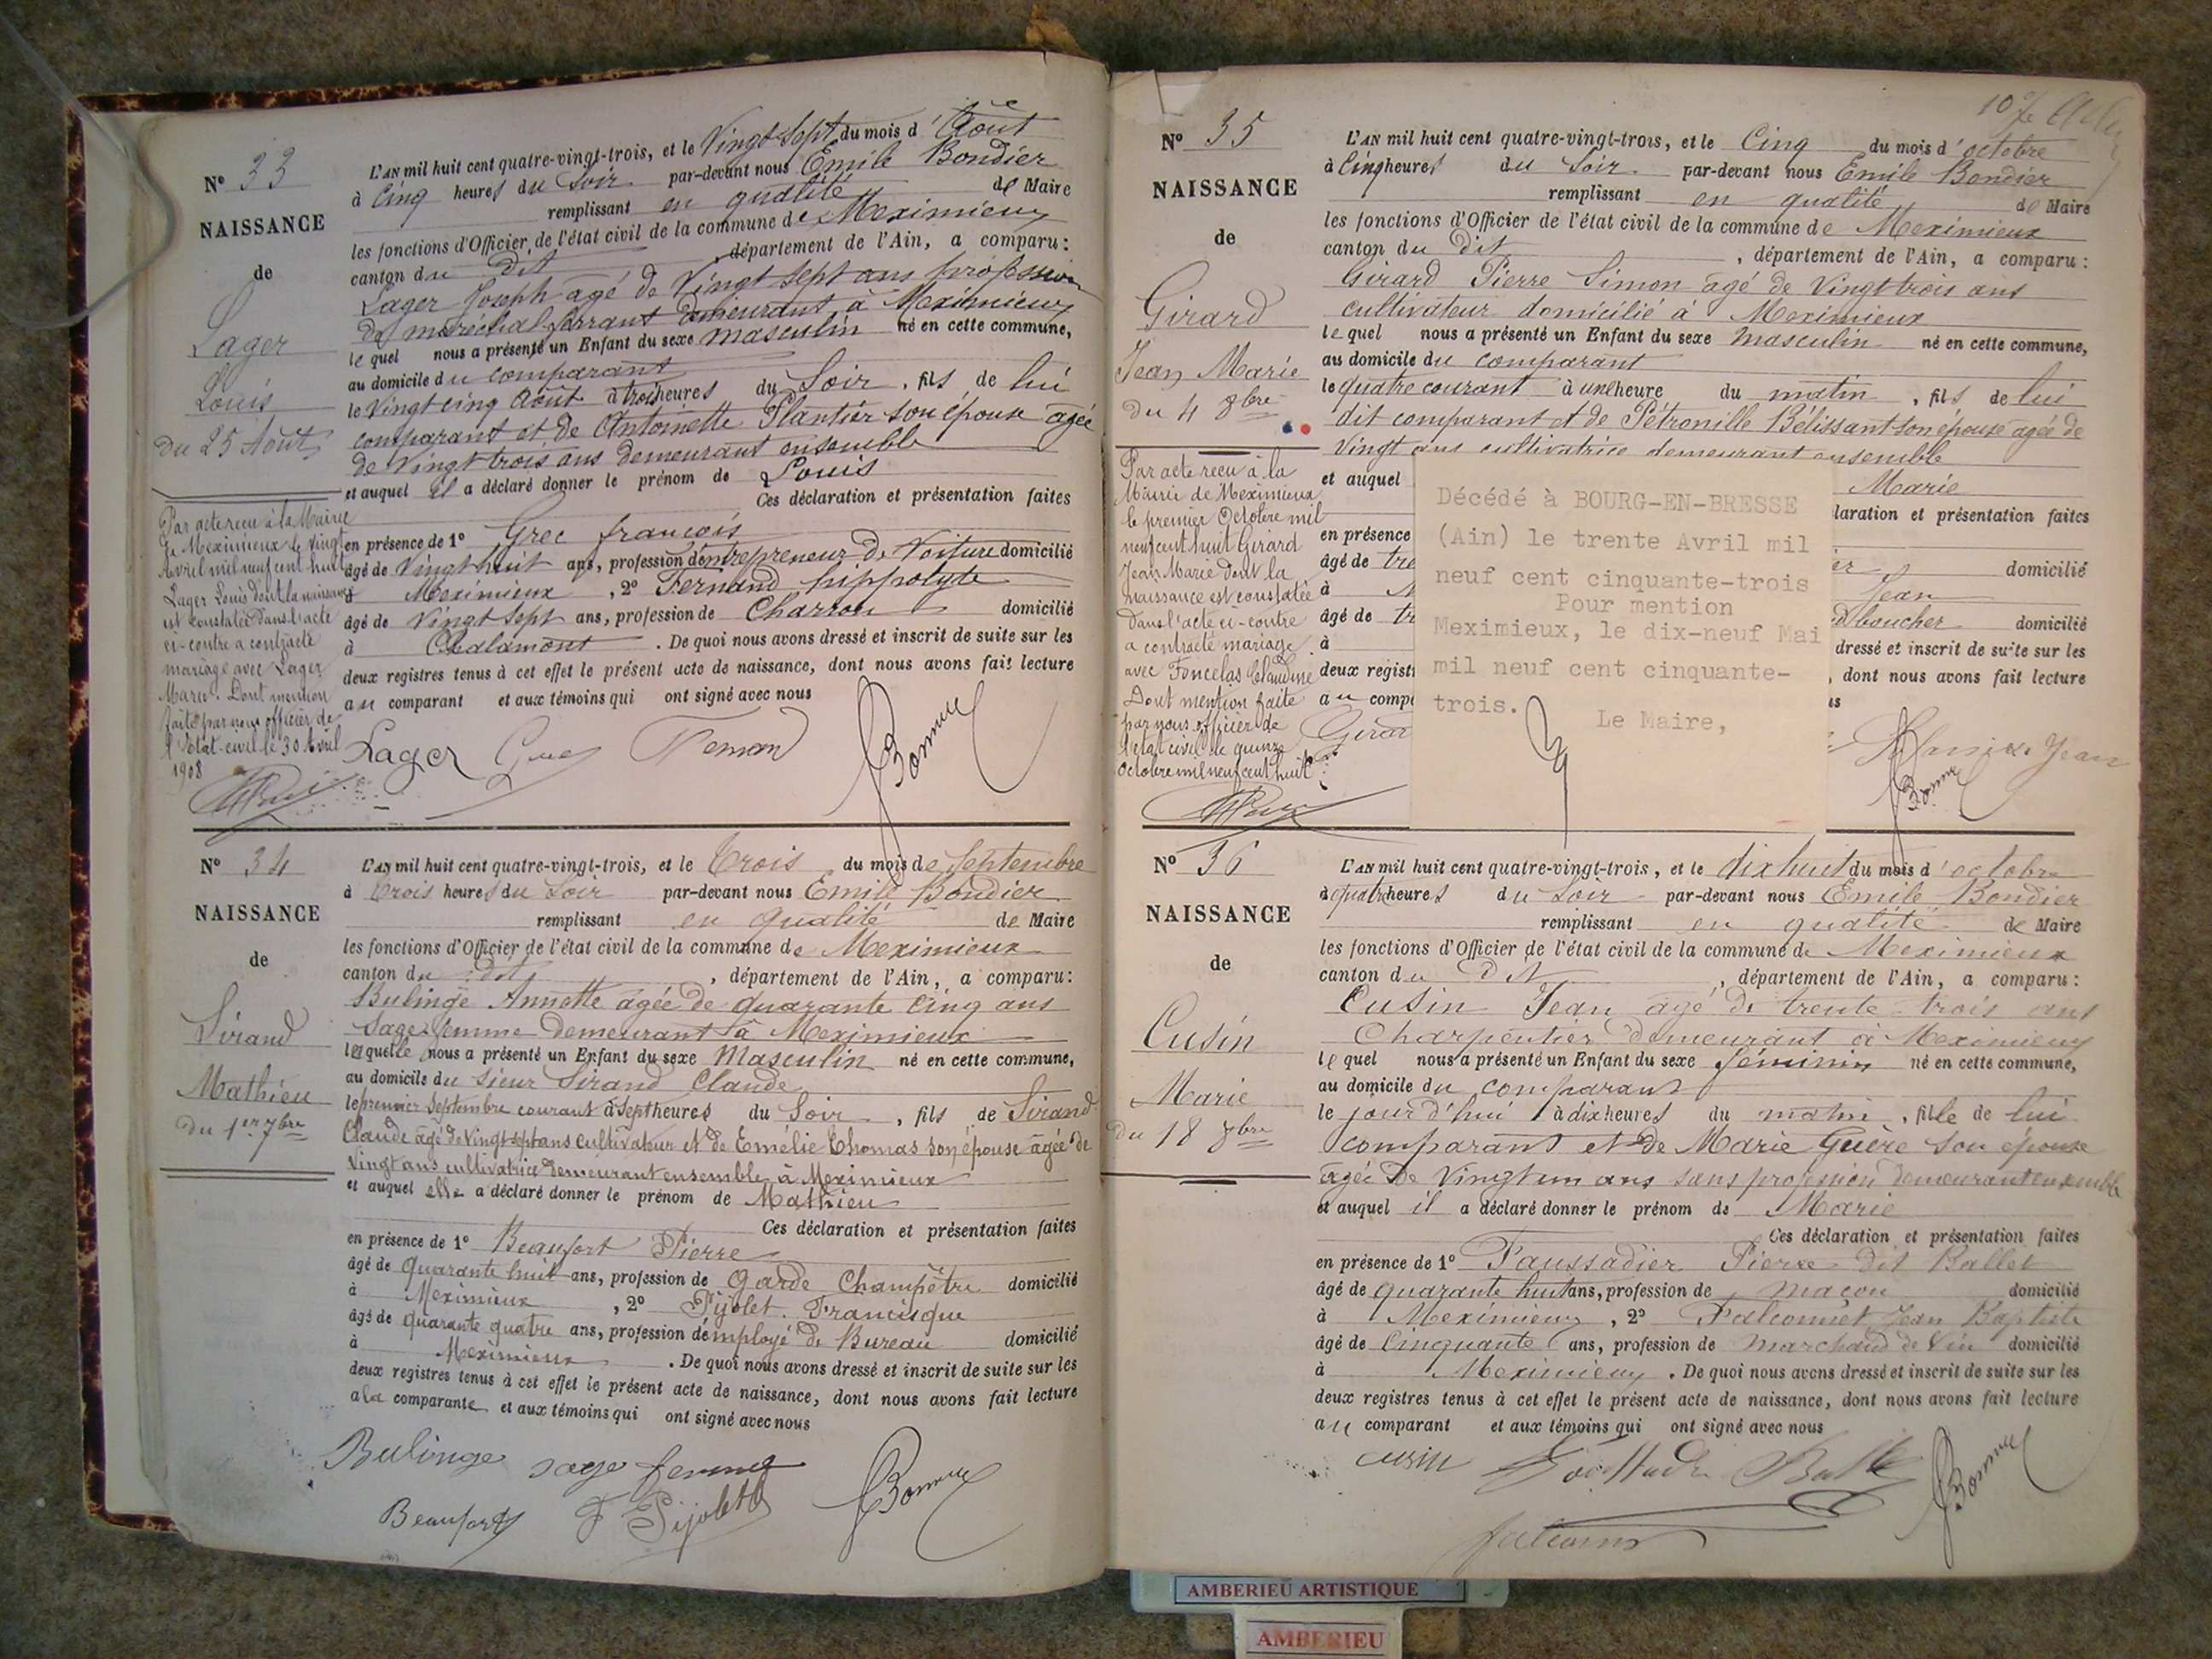 N° 33
NAISSANCE
de
Lager
Louis
du 25 Août
L'AN mil huit cent quatre-vingt-trois, et le Vingt Sept du mois d'Août
à Cinq heures du Soir par-devant nous Emile Bondier
remplissant en qualité de Maire
les fonctions d'Officier de l'état civil de la commune de Meximieux
canton du Dit, département de l'Ain, a comparu:
Lager Joseph agé de Vingt Sept ans profession
de maréchal-ferrant demeurant à Meximieux
lequel nous a présenté un Enfant du sexe masculin né en cette commune,
au domicile du comparant
le Vingt cinq Août à trois heures du Soir, fils de lui
comparant et de Antoinette Plantier son épouse agée
de Vingt trois ans demeurant ensemble
et auquel il a déclaré donner le prénom de Louis
Ces déclaration et présentation faites
en présence de 1° Grec françois
âgé de Vingt huit ans, profession d'entrepreneur de Voiture domicilié
à Meximieux, 2° Fernand hippolyte
âgé de Vingt Sept ans, profession de Charron domicilié
à Chalamont. De quoi nous avons dressé et inscrit de suite sur les
deux registres tenus à cet effet le présent acte de naissance, dont nous avons fait lecture
au comparant et aux témoins qui ont signé avec nous
Par acte recu à la Mairie
de Meximieux le vingt
Avril mil neuf cent huit
Lager Louis dont la naissance
est constatée dans l'acte
ci-contre a contracté
mariage avec Lager
Marie. Dont mention
faite par nous officier de
l'état-civil le 30 Avril
1908
Lager
N° 34
NAISSANCE
de
Sirand
Mathieu
du 1er 7bre
L'AN mil huit cent quatre-vingt-trois, et le Trois du mois de Septembre
à trois heures du Soir par-devant nous Emile Bondier
remplissant en qualité de Maire
les fonctions d'Officier de l'état civil de la commune de Meximieux
canton du dit, département de l'Ain, a comparu:
Bulinge Annette agée de quarante cinq ans
Sage-femme demeurant à Meximieux
laquelle nous a présenté un Enfant du sexe Masculin né en cette commune,
au domicile du sieur Sirand Claude
le premier Septembre courant à Sept heures du Soir, fils de Sirand
Claude agé de vingt-sept ans cultivateur et de Emélie Thomas son épouse agée de
vingt ans cultivatrice demeurant ensemble à Meximieux
et auquel elle a déclaré donner le prénom de Mathieu
Ces déclaration et présentation faites
en présence de 1° Beaufort Pierre
âgé de quarante huit ans, profession de Garde Champêtre domicilié
à Meximieux, 2° Pijolet Francisque
âgé de quarante quatre ans, profession d'employé de Bureau domicilié
à Meximieux. De quoi nous avons dressé et inscrit de suite sur les
deux registres tenus à cet effet le présent acte de naissance, dont nous avons fait lecture
à la comparante et aux témoins qui ont signé avec nous
Bulinge sage femme
Beaufort F Pijolet
N° 35
NAISSANCE
de
Girard
Jean Marie
du 4 8bre
L'AN mil huit cent quatre-vingt-trois, et le Cinq du mois d'octobre
à Cinq heures du Soir par-devant nous Emile Bondier
remplissant en qualité de Maire
les fonctions d'Officier de l'état civil de la commune de Meximieux
canton du Dit, département de l'Ain, a comparu:
Girard Pierre Simon agé de Vingt trois ans
cultivateur domicilié à Meximieux
lequel nous a présenté un Enfant du sexe masculin né en cette commune,
au domicile du comparant
le quatre courant à une heure du matin, fils de lui
dit comparant et de Pétronille Bélissant son épouse agée de
Vingt ans cultivatrice demeurant ensemble
et auquel Marie
laration et présentation faites
en présence
âgé de domicilié
à Jean
âgé de boucher domicilié
à dressé et inscrit de suite sur les
deux regist , dont nous avons fait lecture
au comp
Décédé à BOURG-EN-BRESSE
(Ain) le trente Avril mil
neuf cent cinquante-trois
Pour mention
Meximieux, le dix-neuf Mai
mil neuf cent cinquante-
trois.
Le Maire,
Par acte recu à la
Mairie de Meximieux
le premier Octobre mil
neuf cent huit Girard
Jean Marie dont la
naissance est constatée
dans l'acte ci-contre
a contracté mariage
avec Foncelas Claudine
Dont mention faite
par nous officier de
l'état civil le quinze
Octobre mil neuf cent huit
Jean
N° 36
NAISSANCE
de
Cusin
Marie
du 18 8bre
L'AN mil huit cent quatre-vingt-trois, et le dix huit du mois d'octobre
à quatre heures du Soir par-devant nous Emile Bondier
remplissant en qualité de Maire
les fonctions d'Officier de l'état civil de la commune de Meximieux
canton du Dit, département de l'Ain, a comparu:
Cusin Jean agé de trente-trois ans
Charpentier demeurant à Meximieux
lequel nous a présenté un Enfant du sexe féminin né en cette commune,
au domicile du comparant
le jour d'hui à dix heures du matin, fille de lui
comparant et de Marie Guère son épouse
agée de Vingt un ans sans profession demeurant ensemble
et auquel il a déclaré donner le prénom de Marie
Ces déclaration et présentation faites
en présence de 1° Faussadier Pierre dit Ballet
âgé de quarante huit ans, profession de maçon domicilié
à Meximieux, 2° Falconnet Jean Baptiste
âgé de Cinquante ans, profession de marchand de Vin domicilié
à Meximieux. De quoi nous avons dressé et inscrit de suite sur les
deux registres tenus à cet effet le présent acte de naissance, dont nous avons fait lecture
au comparant et aux témoins qui ont signé avec nous
cusin
AMBERIEU ARTISTIQUE
AMBERIEU